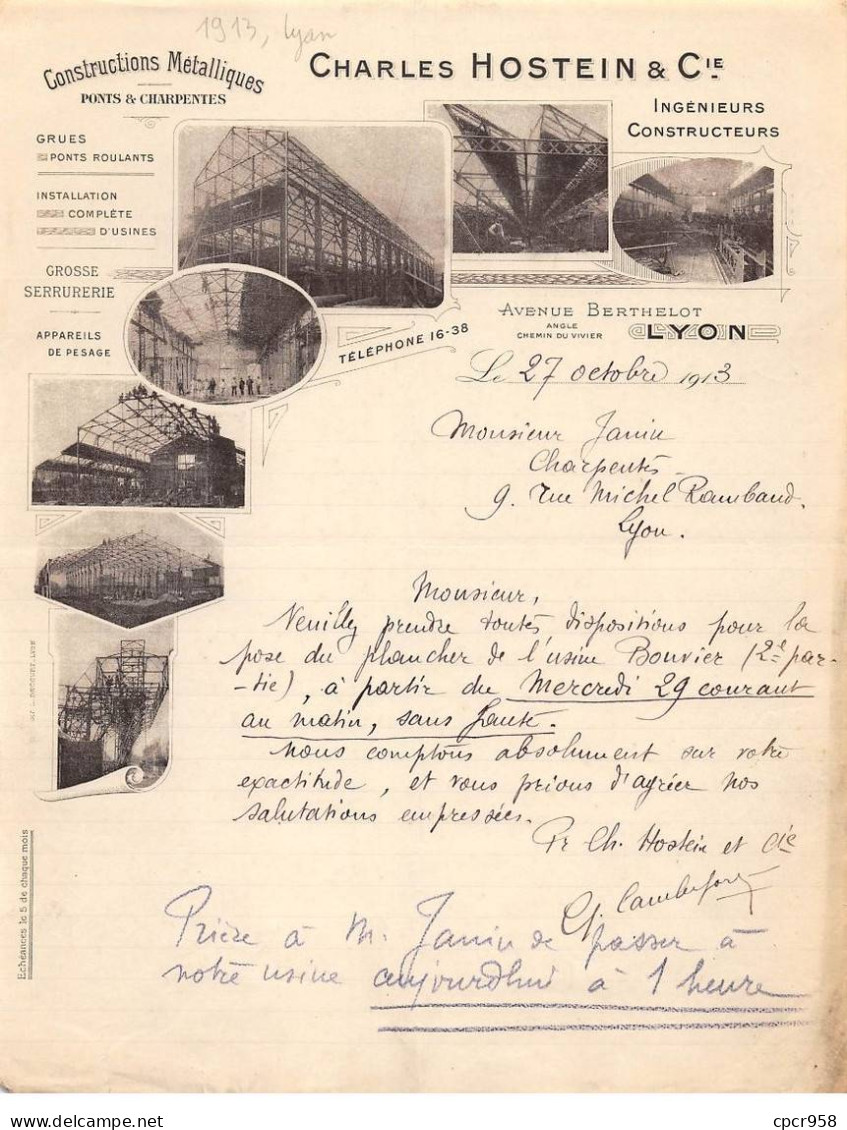 1913, Lyon
Constructions Métalliques
PONTS & CHARPENTES
CHARLES HOSTEIN & CIE
INGÉNIEURS
CONSTRUCTEURS
GRUES
PONTS ROULANTS
INSTALLATION
COMPLÈTE
D'USINES
GROSSE
SERRURERIE
APPAREILS
DE PESAGE
TÉLÉPHONE 16-38
AVENUE BERTHELOT
ANGLE
CHEMIN DU VIVIER
LYON
Le 27 octobre 1913
Monsieur Janin
Charpentes
9. rue Michel Rambaud.
Lyon.
Monsieur,
Veuillez prendre toutes dispositions pour la
pose du plancher de l'usine Bouvier (2e par-
-tie), à partir du Mercredi 29 courant
au matin, sans faute.
Nous comptons absolument sur votre
exactitude, et vous prions d'agréer nos
salutations empressées.
Pr Ch. Hostein et Cie
Prière à M. Janin de passer à
notre usine aujourdhui à 1 heure
Echéances le 5 de chaque mois
DELCAMPE.NET
cpcr958